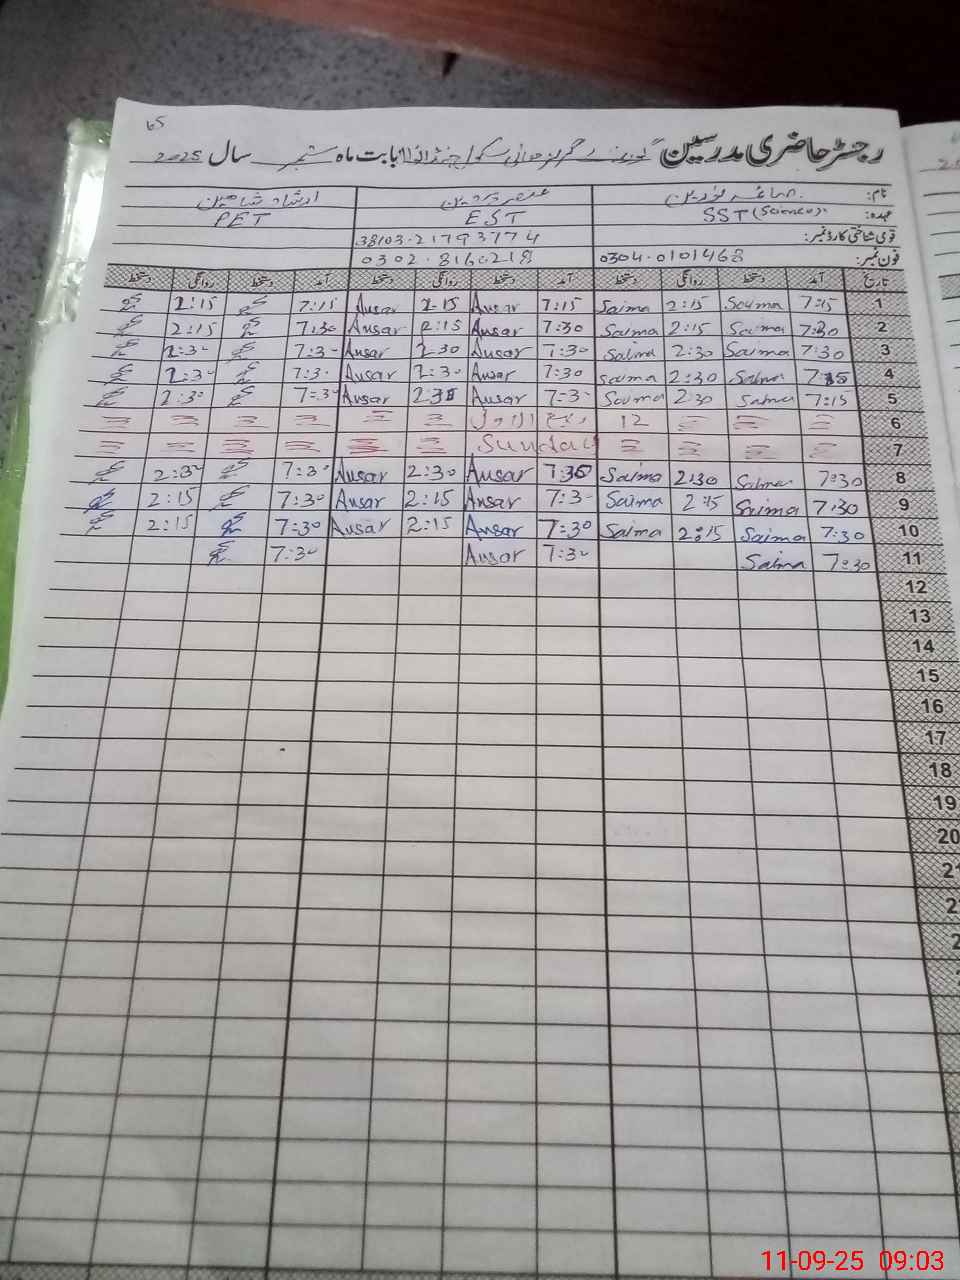 65
رجسٹر حاضری مدرسین گورنمنٹ گرلز ہائی سکول بابت ماہ ستمبر سال 2025
نام: صائمہ نورین ارشاد شاہین
عہدہ: SST (Science) EST PET
قومی شناختی کارڈ نمبر: 38103-21793774
فون نمبر: 0304-0101468 0302-8160218
تاریخ آمد دستخط روانگی دستخط آمد دستخط روانگی دستخط آمد دستخط روانگی دستخط
1 7:15 Saima 2:15 Saima 7:15 Ansar 2:15 Ansar 7:15 2:15
2 7:30 Saima 2:15 Saima 7:30 Ansar 2:15 Ansar 7:30 2:15
3 7:30 Saima 2:30 Saima 7:30 Ansar 2:30 Ansar 7:30 2:30
4 7:15 Saima 2:30 Saima 7:30 Ansar 2:30 Ansar 7:30 2:30
5 7:15 Saima 2:30 Saima 7:30 Ansar 2:30 Ansar 7:30 2:30
6 12 ربیع الاول
7 Sunday
8 7:30 Saima 2:30 Saima 7:30 Ansar 2:30 Ansar 7:30 2:30
9 7:30 Saima 2:15 Saima 7:30 Ansar 2:15 Ansar 7:30 2:15
10 7:30 Saima 2:15 Saima 7:30 Ansar 2:15 Ansar 7:30 2:15
11 7:30 Saima 7:30 Ansar 7:30
12
13
14
15
16
17
18
19
20
11-09-25 09:03